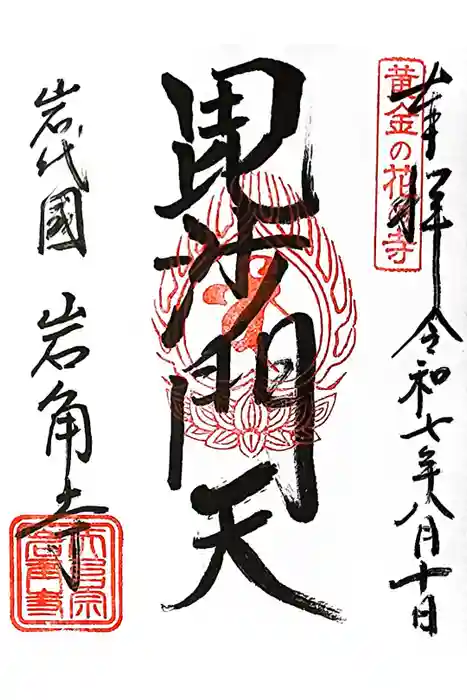 奉拝 令和七年八月十日
黄金の花咲寺
毘沙門天
岩代國 岩角寺